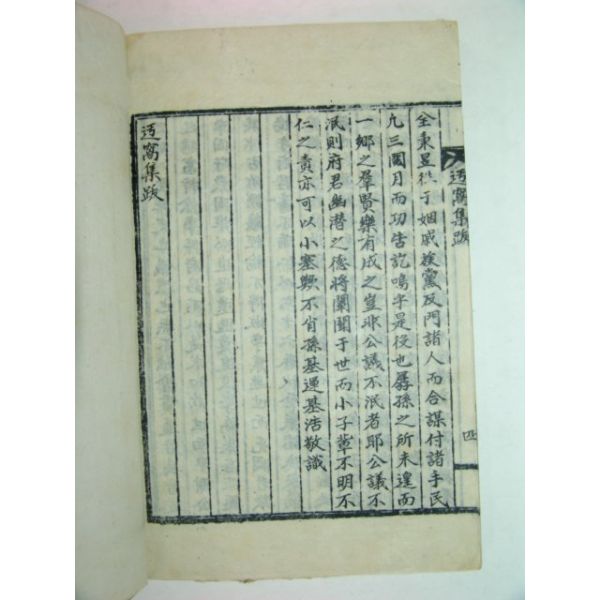 迃窩集跋
四
全秉昱從于姻戚族黨及門諸人而合謀付諸手民
凡三閱月而功告訖嗚乎是役也孱孫之所未遑而
一鄉之羣賢樂有成之豈非公議不泯者耶公議不
泯則府君幽潛之德將闡聞于世而小子輩不明不
仁之責亦可以小塞歟不肖孫基運基浩敬識
迃窩集跋